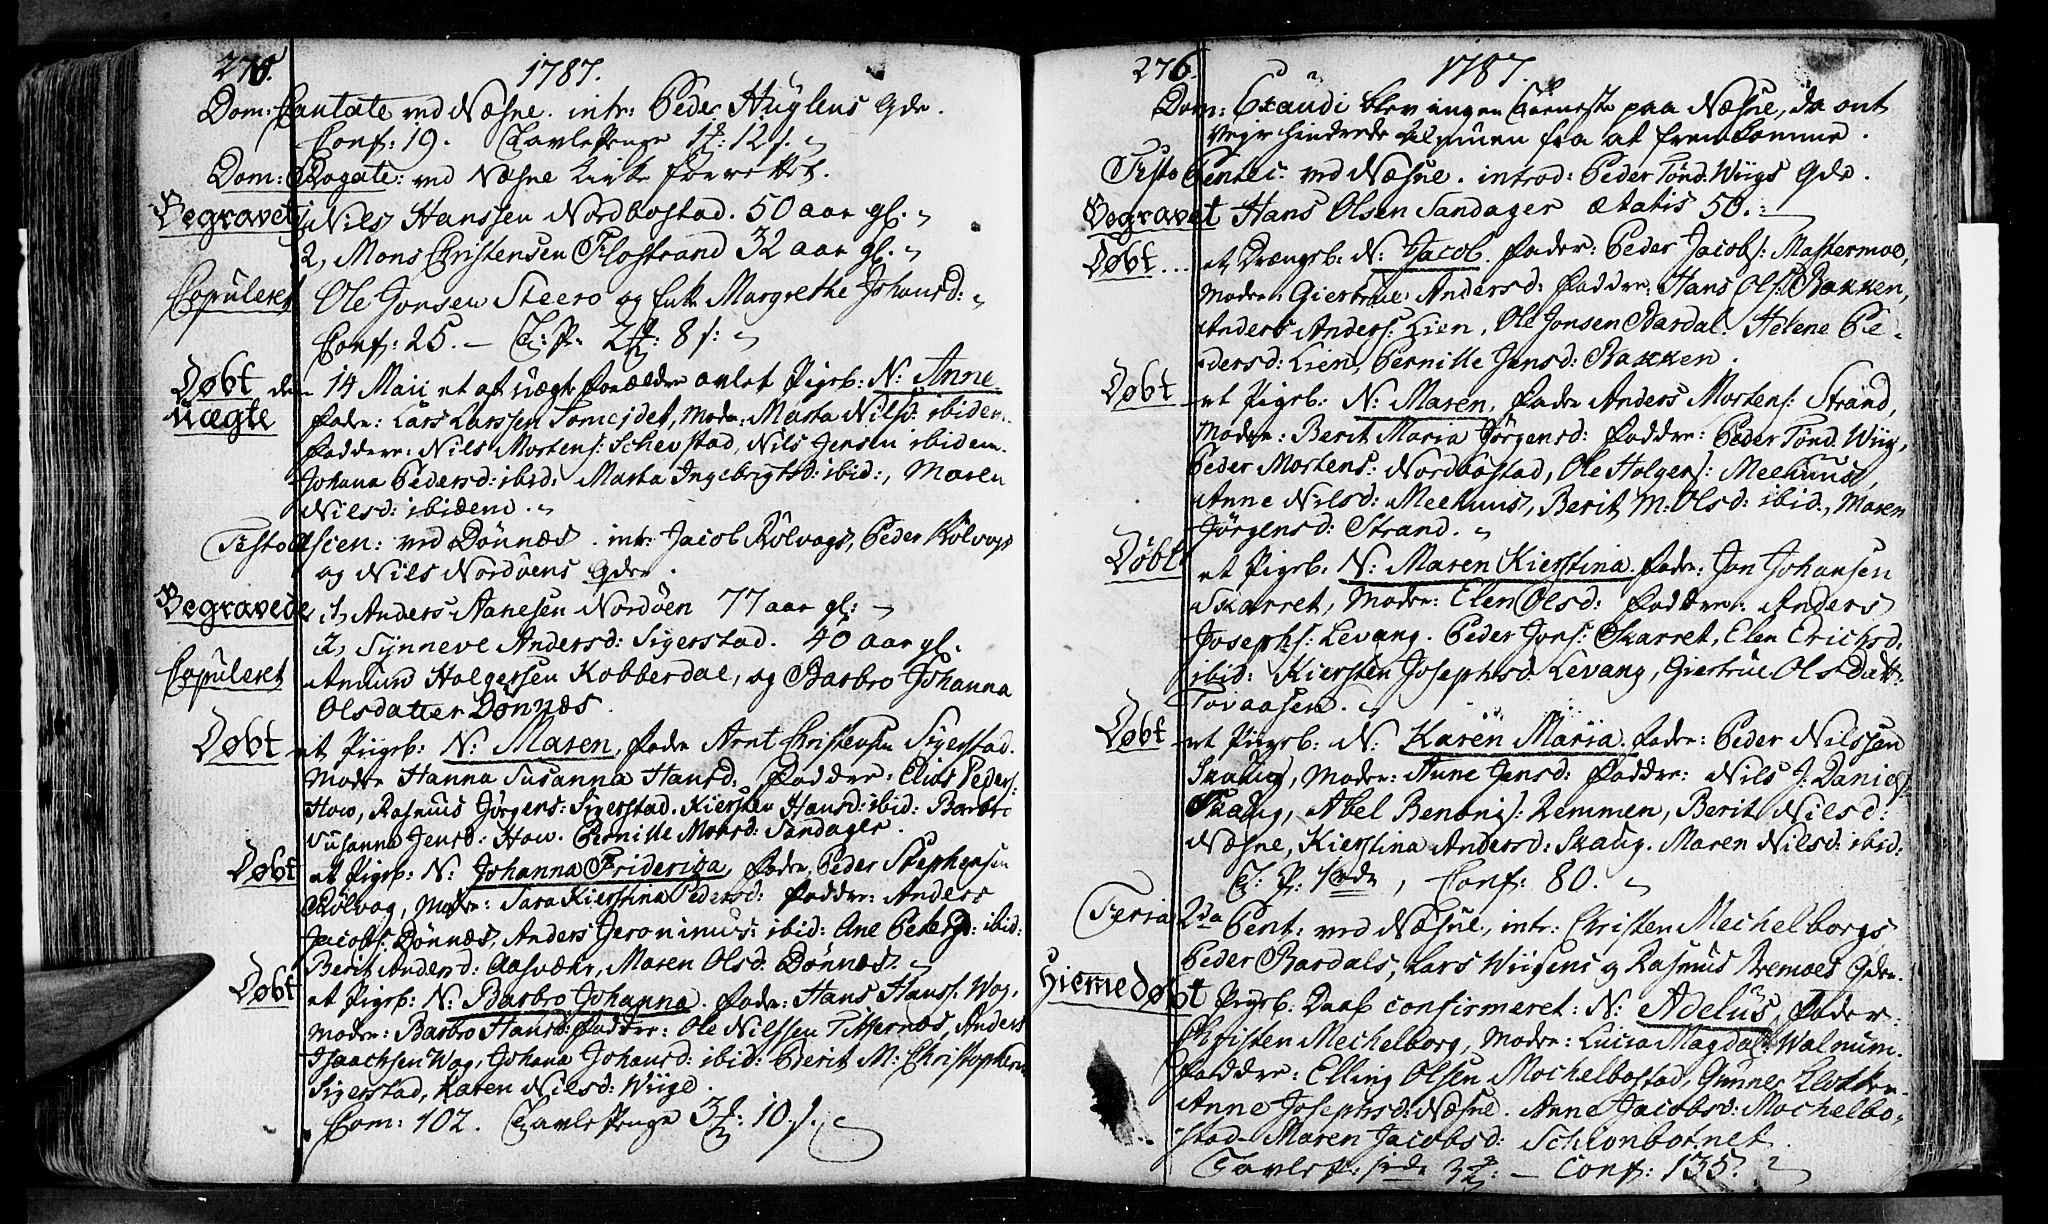 275.
1787.
Dom: Cantate ved Næsne. intr: Peder Hüglens Qde.
Conf: 19. Tavlepenge 1 12 s.
Dom: Rogate: ved Næsne Kirke forrettet.
Begravet 1, Nils Hanssen Nordbostad. 50 aar gl.
2, Mons Christensen Flostrand 32 aar gl.
Copuleret Ole Jonsen Steero og Enke Margrethe Johansd:
Conf: 25. — T: P. 2 8 s:
Døbt den 14 Maii et af uægte forældre avlet Pigeb: N: Anne
Uægte Fader: Lars Larssen Tomeidet, Moder: Marta Nilsd: ibidem.
Faddere: Nils Mortens: Schevstad, Nils Jensen ibidem.
Johana Pedersd: ibid: Marta Ingebrigtsd: ibid:, Maren
Nilsd: ibidem.
Festo Ascen: ved Dønnæs. intr: Jacob Rølvogs, Peder Rølvogs
og Nils Nordøens Qder.
Begravede 1, Anders Aanesen Nordøen 77 aar gl:
2, Synneve Andersd: Sigerstad. 40 aar gl.
Copuleret Amund Holgersen Kobberdal, og Barbro Johanna
Olsdatter Dønnæs.
Døbt et Pigeb: N: Maren, Fader Arnt Christensen Sigerstad.
Moder Hanna Susanna Hansd: Faddere: Elias Peders:
How, Rasmus Jørgens: Sigerstad. Kiersten Hansd: ibid: Barbro
Susanna Jensd: How. Pernille Monsd: Sandager.
Døbt et Pigeb: N: Johanna Friderica, Fader Peder Stephensen
Rølvog, Moder: Sara Kierstina Pedersd: Faddere: Anders
Jacobs: Dønnæs, Anders Jeronimus: ibid: Ane Petersd: ibid:
Berit Andersd: Aasvær, Maren Olsd. Dønnæs.
Døbt et Pigeb: N: Barbro Johanna. Fader: Hans Hanss: Wog,
Moder: Barbro Hansd: Faddere: Ole Nilssen Titternæs, Anders
Isaachsen Wog, Johana Johansd: ibid: Berit M: Christophers
Sigerstad, Karen Nilsd: Wiige.
Com: 102. Tavlepenge 3 : 10 s.
276.
1787.
Dom: Exaudi blev ingen Tieneste paa Næsne, da ont
Vejr hindrede Almuen fra at fremkomme.
Festo Pentec: ved Næsne. introd: Peder Tønd. Wiigs Qde.
Begravet Hans Olsen Sandager ætatis 50.
Døbt... et Drengeb: N: Jacob. Fader: Peder Jacobs: Mastermoe,
Moder Giertrue Andersd: Faddere: Hans Ols: Bakken,
Anders Anders: Lien, Ole Jonsen Bardal. Helene Pe-
dersd: Lien, Pernille Jensd: Bakken.
Døbt et Pigeb: N: Maren, Fader Anders Mortens: Strand,
Moder: Berit Maria Jørgensd: Faddere: Peder Tønd. Wiig,
Peder Mortens: Nordbostad, Ole Holgers: Meehuus,
Anne Nilsd: Meehuus, Berit M. Olsd: ibid:, Maren
Jørgensd: Strand.
Døbt et Pigeb: N: Maren Kierstina. Fader: Jon Johansen
Skarret, Moder: Elen Olsd: Faddere: Anders
Josephs: Levang. Peder Jons: Skarret, Elen Erichsd.
ibid: Kiersten Josephsd: Levang, Giertrue Olsdatt:
Tovaasen.
Døbt et Pigeb: N: Karen Maria. Fader: Peder Nilssen
Skaug, Moder: Anne Jensd: Faddere: Nils J: Daniels:
Skaug, Abel Benonis: Remmen, Berit Nilsd:
Næsne, Kierstina Andersd: Skaug. Maren Nilsd: ibid:
T: P: 1 rdr, Conf: 80.
Feria 2da Pent: ved Næsne, intr: Christen Mechelborgs
Peder Bardals, Lars Wiigens og Rasmus Bremoes Qder.
Hiemedøbt Pigeb: Daab confirmeret: N: Adelus, Fader:
Christen Mechelborg, Moder: Lucia Magdal: Walnum.
Faddere: Elling Olsen Mochelbostad, Gunnes Klokker
Anne Josephsd: Næsne. Anne Jacobsd: Mochelbo-
stad. Maren Jacobsd: Schionbotnet.
Tavlep: 3 — Conf: 135.